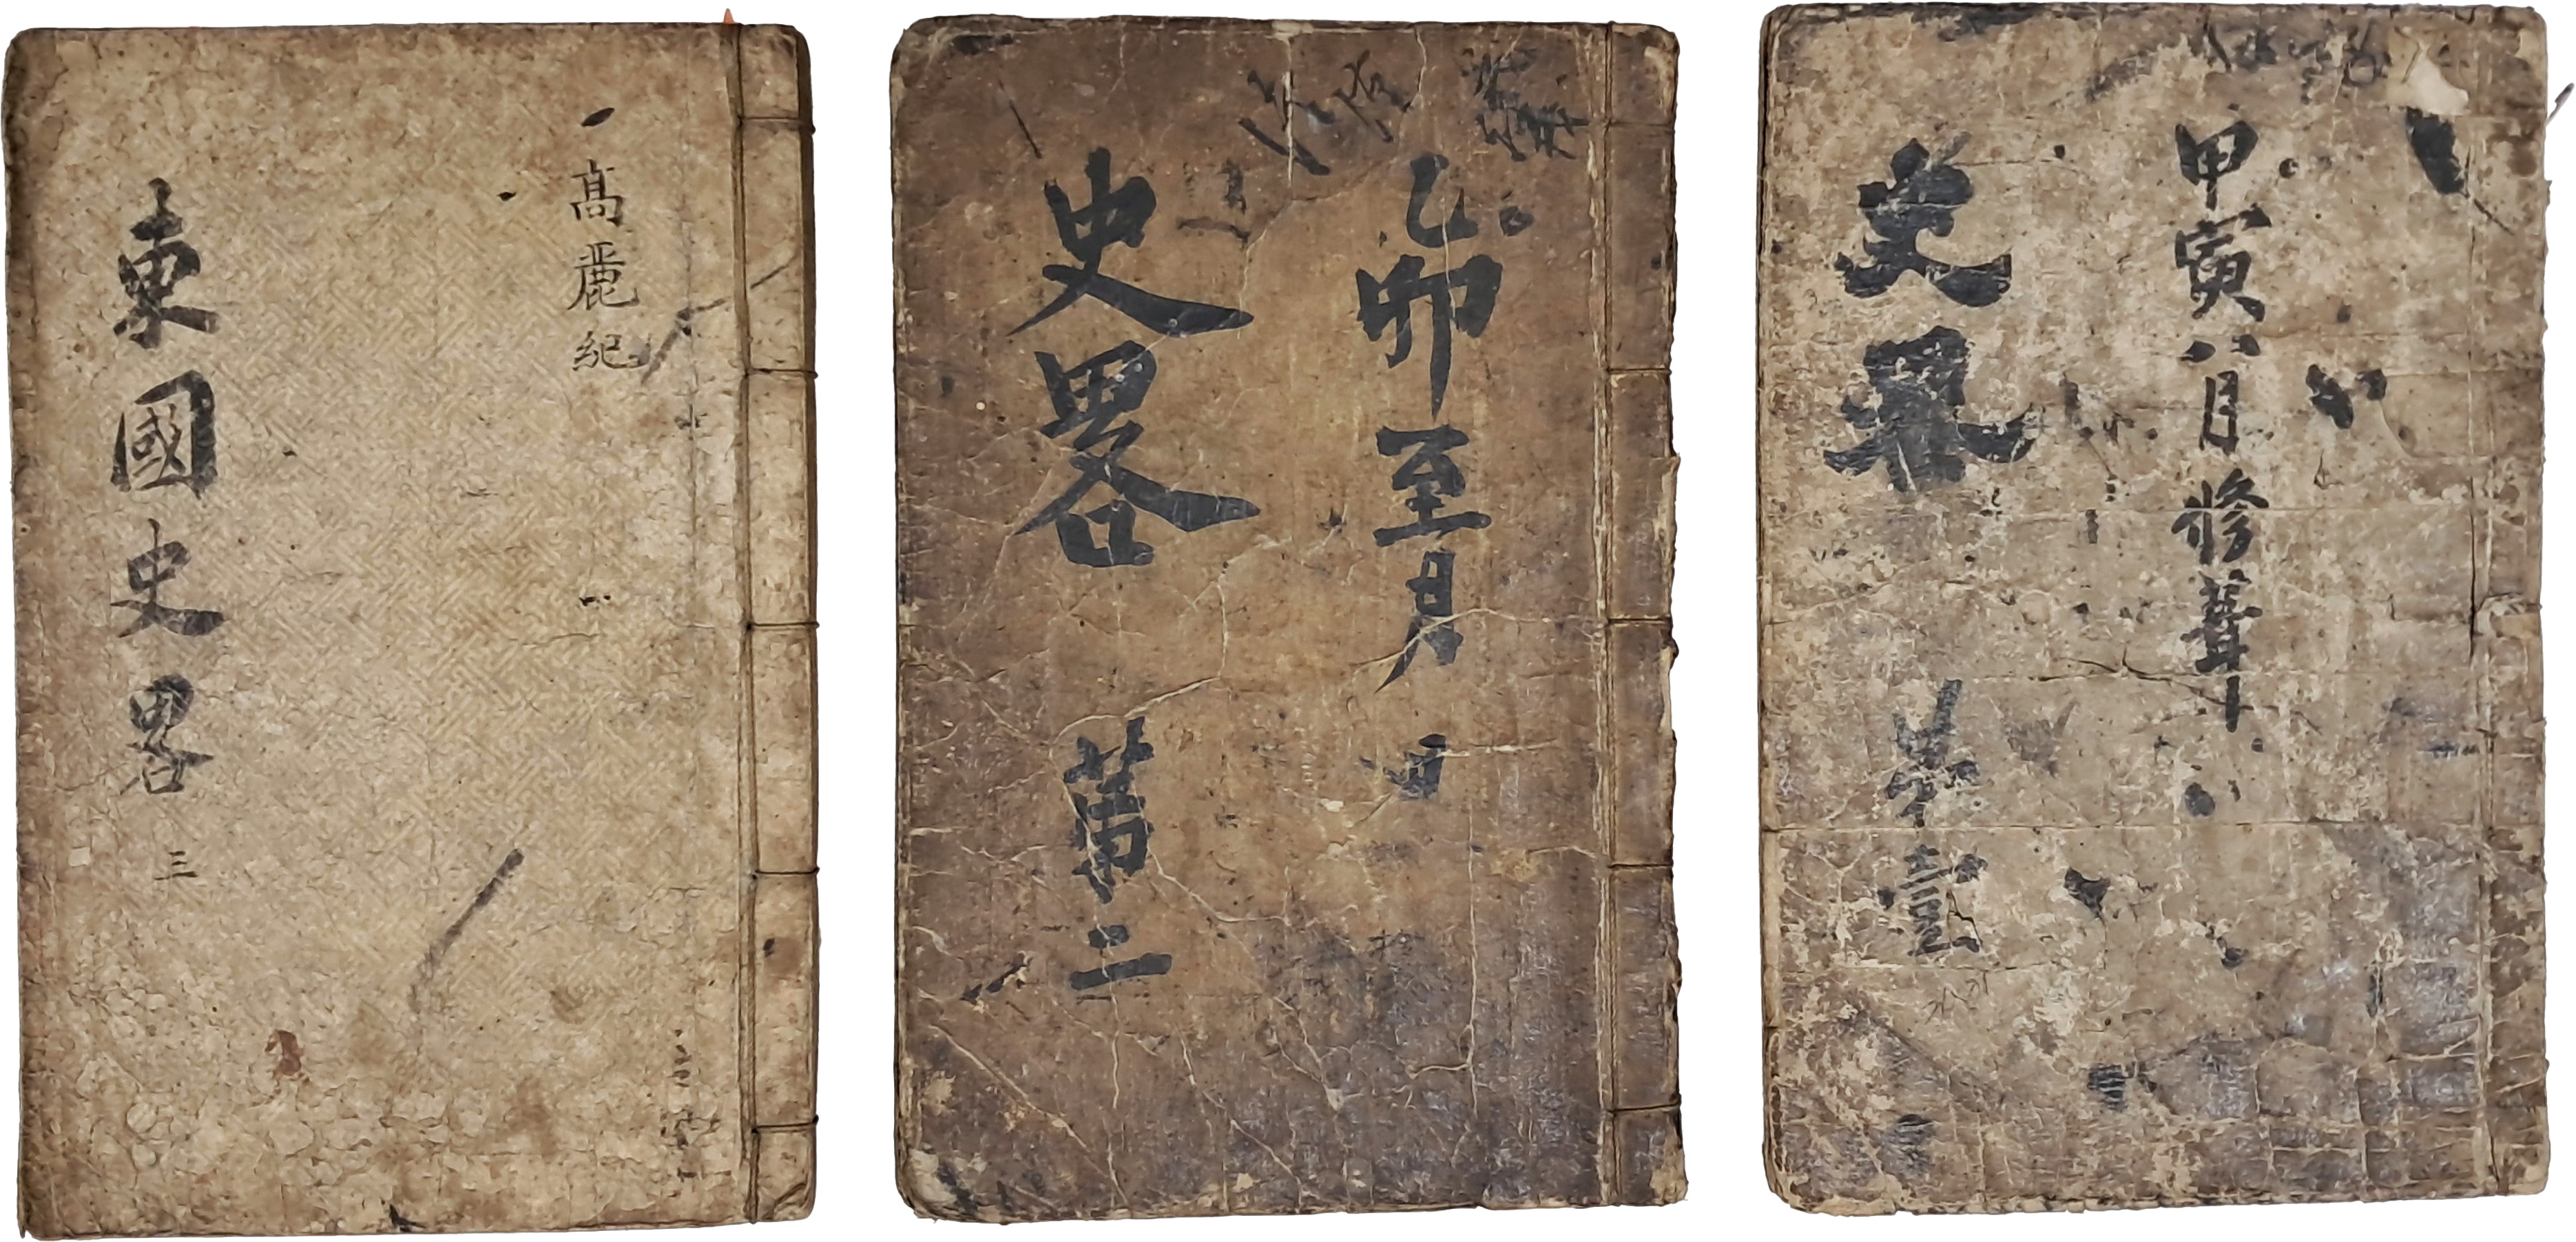 高麗紀
東國史畧 三
乙卯至月 日
史畧 第二
甲寅八月修葺
史畧 卷壹